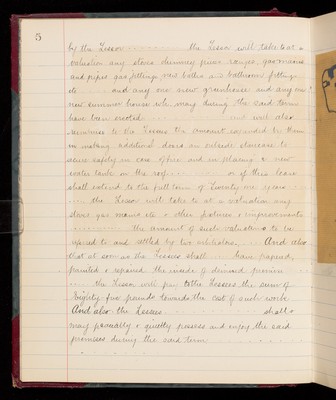 5
by the Lessor . . . . . . . . the Lessor will take to at a
valuation any stoves chimney pieces ranges, gas mains
and pipes gas fittings new baths and bathroom fittings
etc . . . . and any one new greenhouse and any one
new summer house wh. may during the said term
have been erected . . . . . . . . and will also
to the Lessees the amount expended by them
in making additional doors an outside staircase to
secure safety in case of fire and in placing a new
water tank on the roof . . . . . or if this lease
shall extend to the full term of twenty one years . . . .
. . . . the Lessor will take to at a valuation any
stoves gas mains etc & other fixtures & improvements
. . . . . . . . the amount of such valuations to be
referred to and settled by two arbitrators . . . . And also
that as soon as the Lessees shall . . . . have papered,
painted & repaired the inside of demised premises . . . .
. . . . the Lessor will pay to the Lessees the sum of
Eighty five pounds towards the cost of such work.
And also the Lessees . . . . . . . . shall &
may peaceably & quietly possess and enjoy the said
premises during the said term . . . . . . . .